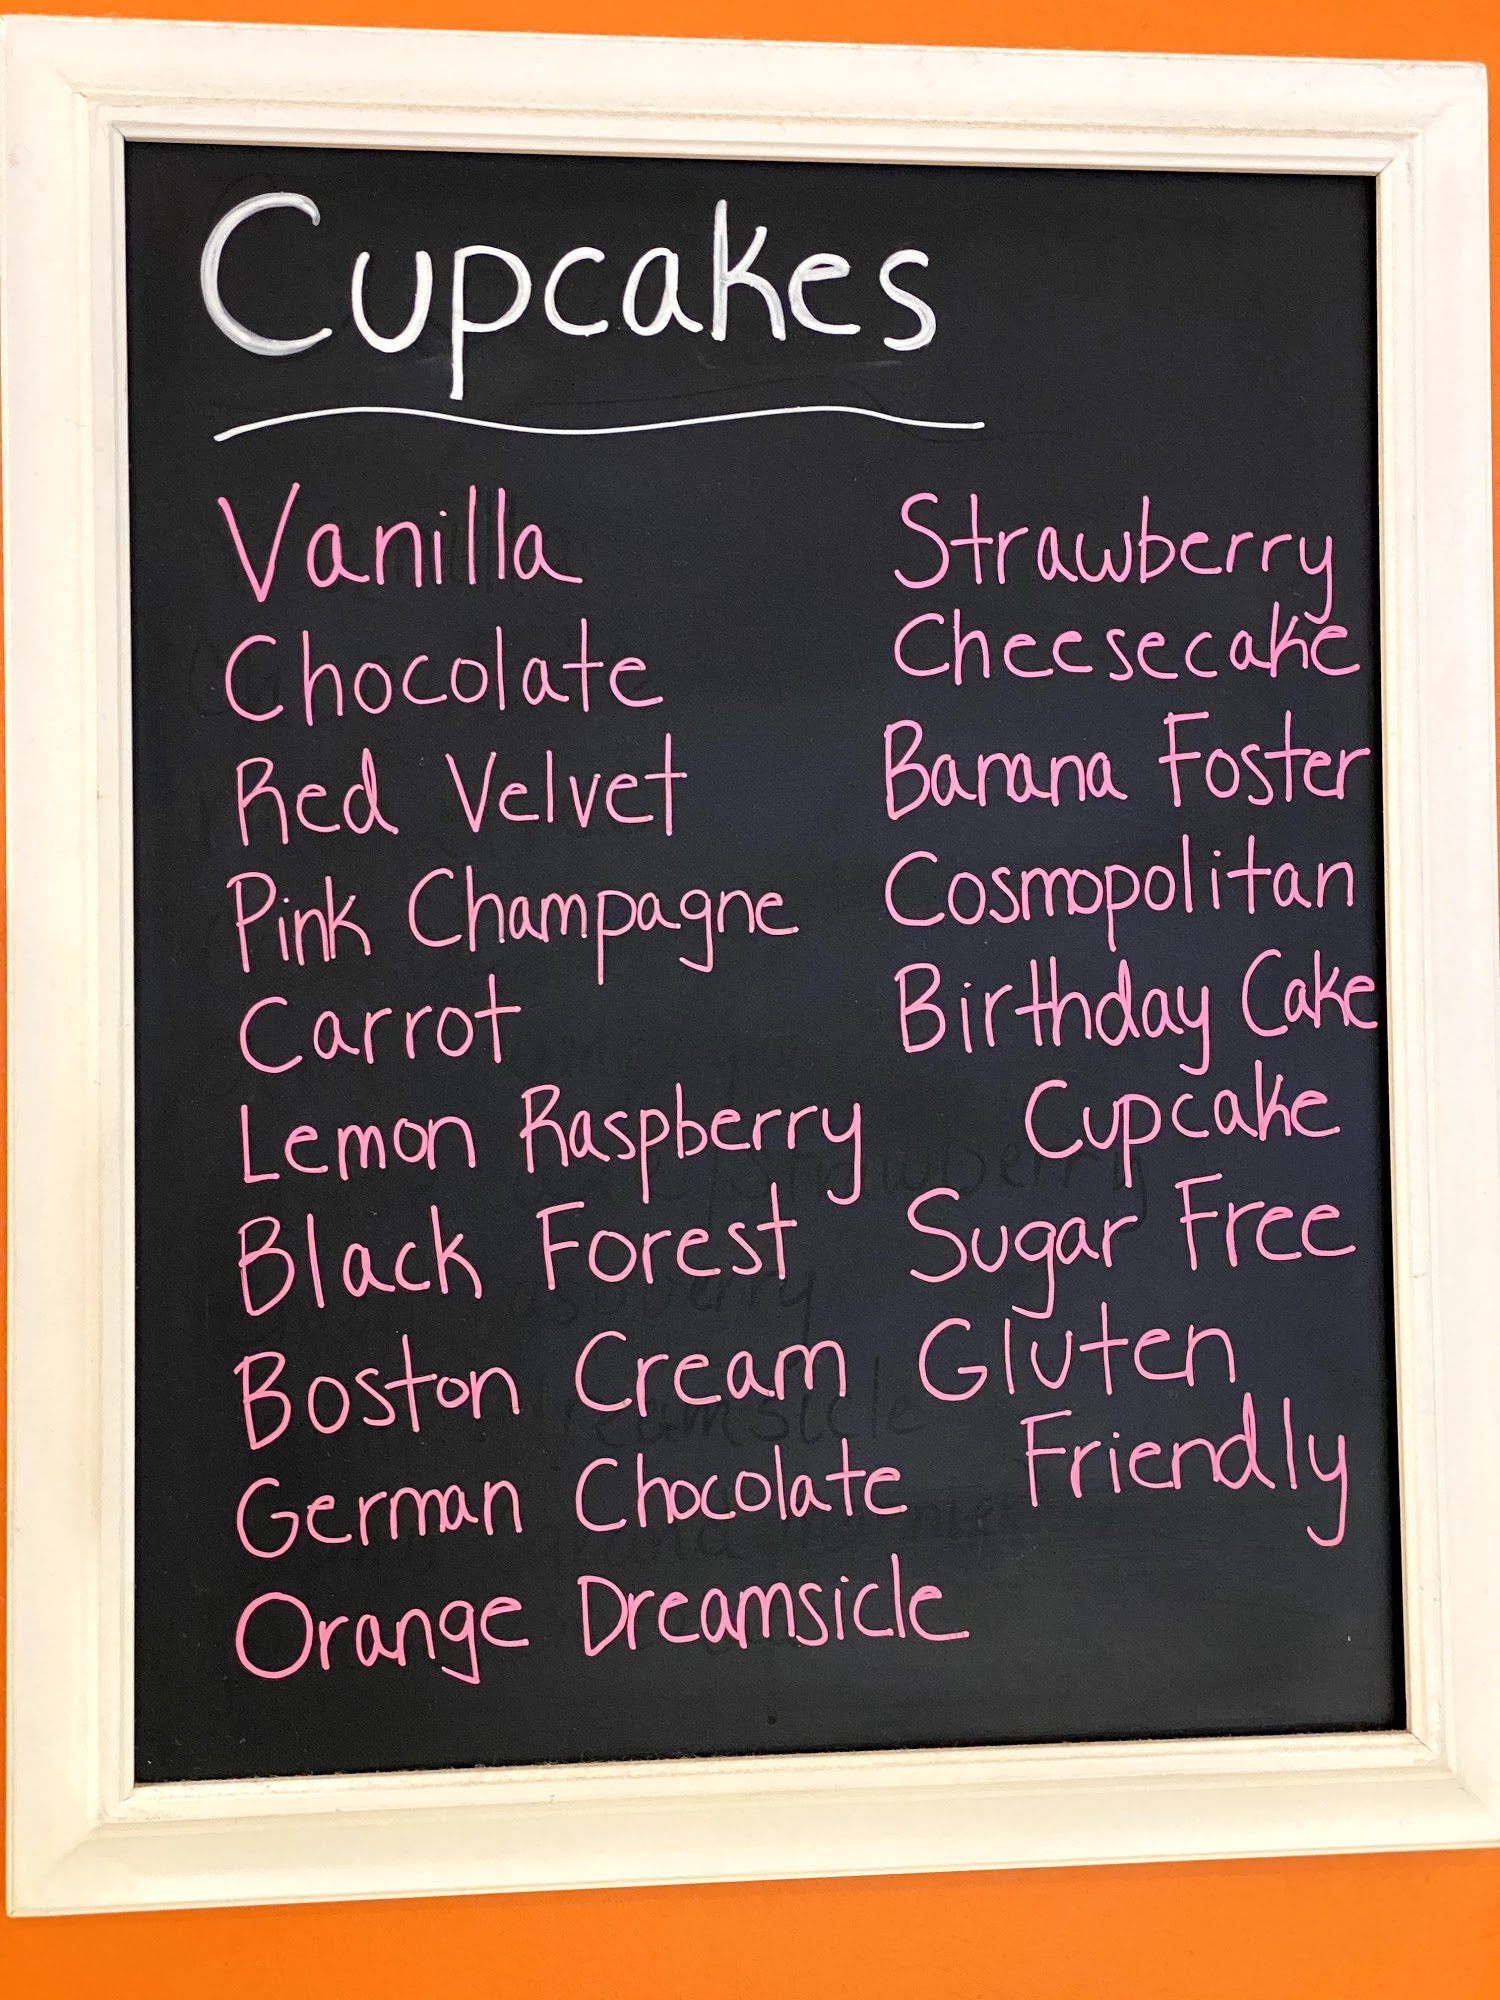 Cupcakes
Vanilla
Chocolate
Red Velvet
Pink Champagne
Carrot
Lemon Raspberry
Black Forest
Boston Cream
German Chocolate
Orange Dreamsicle
Strawberry
Cheesecake
Banana Foster
Cosmopolitan
Birthday Cake
Cupcake
Sugar Free
Gluten
Friendly